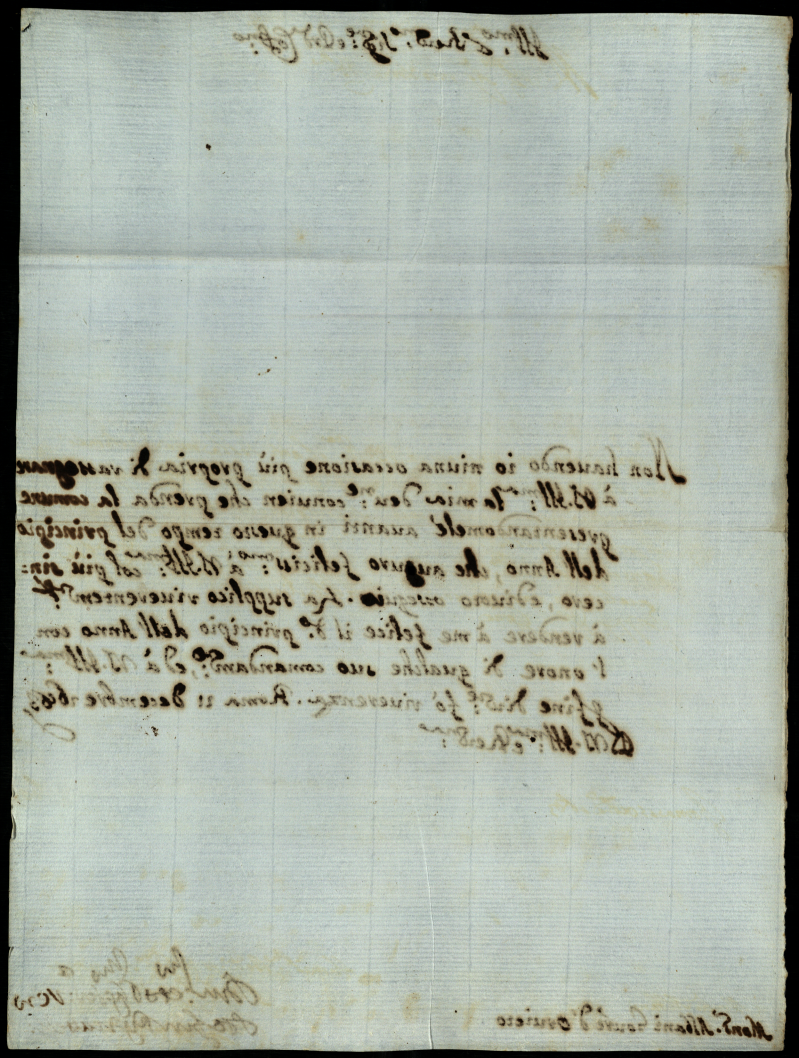 Ill.mo e Rev.mo Sig.re e P.ron Col.mo
Non hauendo io niuna occasione più propria di rassegnare
à V.S. Ill.ma la mia deu.ne conuien che prenda la comune
presentandomele auanti in questo tempo del principio
dell'Anno, che auguro feliciss.mo à V.S. Ill.ma col più sin:
cero, e diuoto ossequio. La supplico riuerentem.te
à rendere à me felice il d.o principio dell'Anno con
l'onore di qualche suo comandam.to, ed à V.S. Ill.ma
per fine fò riuerenza. Roma 21 decembre
D V.S. Ill.ma e Rev.ma
Mons.r Albani Gou.re d'Oruieto